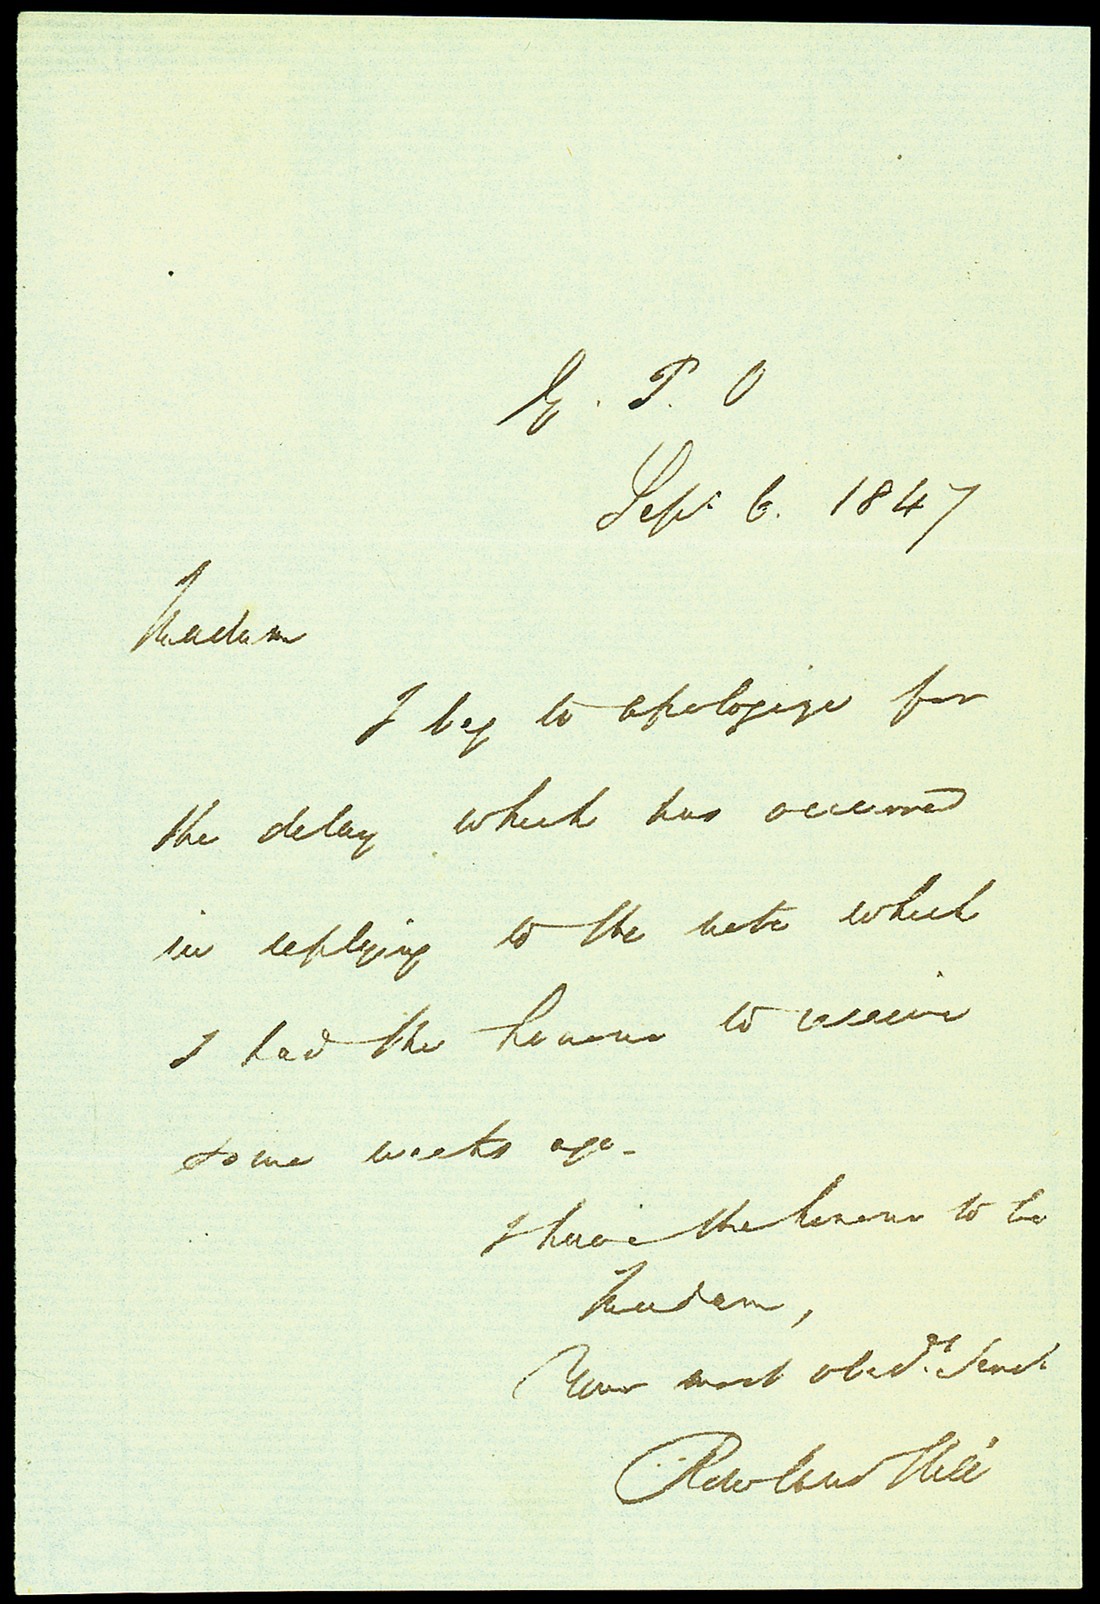 G. P. O
Sept 6. 1847
Madam
I beg to apologize for
the delay which has occurred
in replying to the note which
I had the honour to receive
some weeks ago.
I have the honour to be
Madam,
Your most obedt. Servt.
Rowland Hill